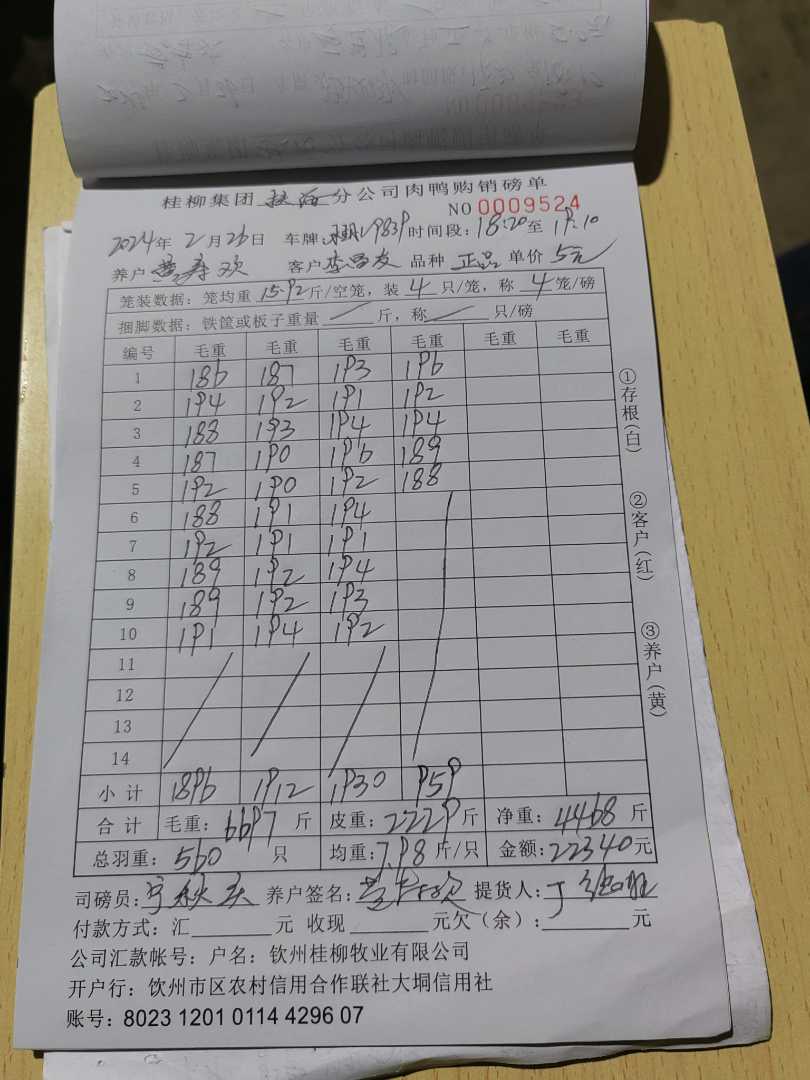 桂柳集团 分公司肉鸭购销磅单
NO 0009524
2024年 2月26日 车牌: 983P 时间段: 18:20至19:10
养户 黄寿欢 客户 李昌友 品种 正品 单价 5元
笼装数据: 笼均重 15.92 斤/空笼, 装 4 只/笼, 称 4 笼/磅
捆脚数据: 铁筐或板子重量 / 斤, 称 / 只/磅
编号 毛重 毛重 毛重 毛重 毛重 毛重
1 186 187 193 196
2 194 192 191 192
3 188 193 194 194
4 187 190 196 189
5 192 190 192 188
6 188 191 194
7 192 191 191
8 189 192 194
9 189 192 193
10 191 194 192
11
12
13
14
小计 1896 1912 1930 959
合计 毛重: 6697 斤 皮重: 2229 斤 净重: 4468 斤
总羽重: 560 只 均重: 7.98 斤/只 金额: 22340元
司磅员: 养户签名: 提货人:
付款方式: 汇 元 收现 元欠(余): 元
公司汇款帐号: 户名: 钦州桂柳牧业有限公司
开户行: 饮州市区农村信用合作联社大垌信用社
账号: 8023 1201 0114 4296 07
①存根(白)
②客户(红)
③养户(黄)